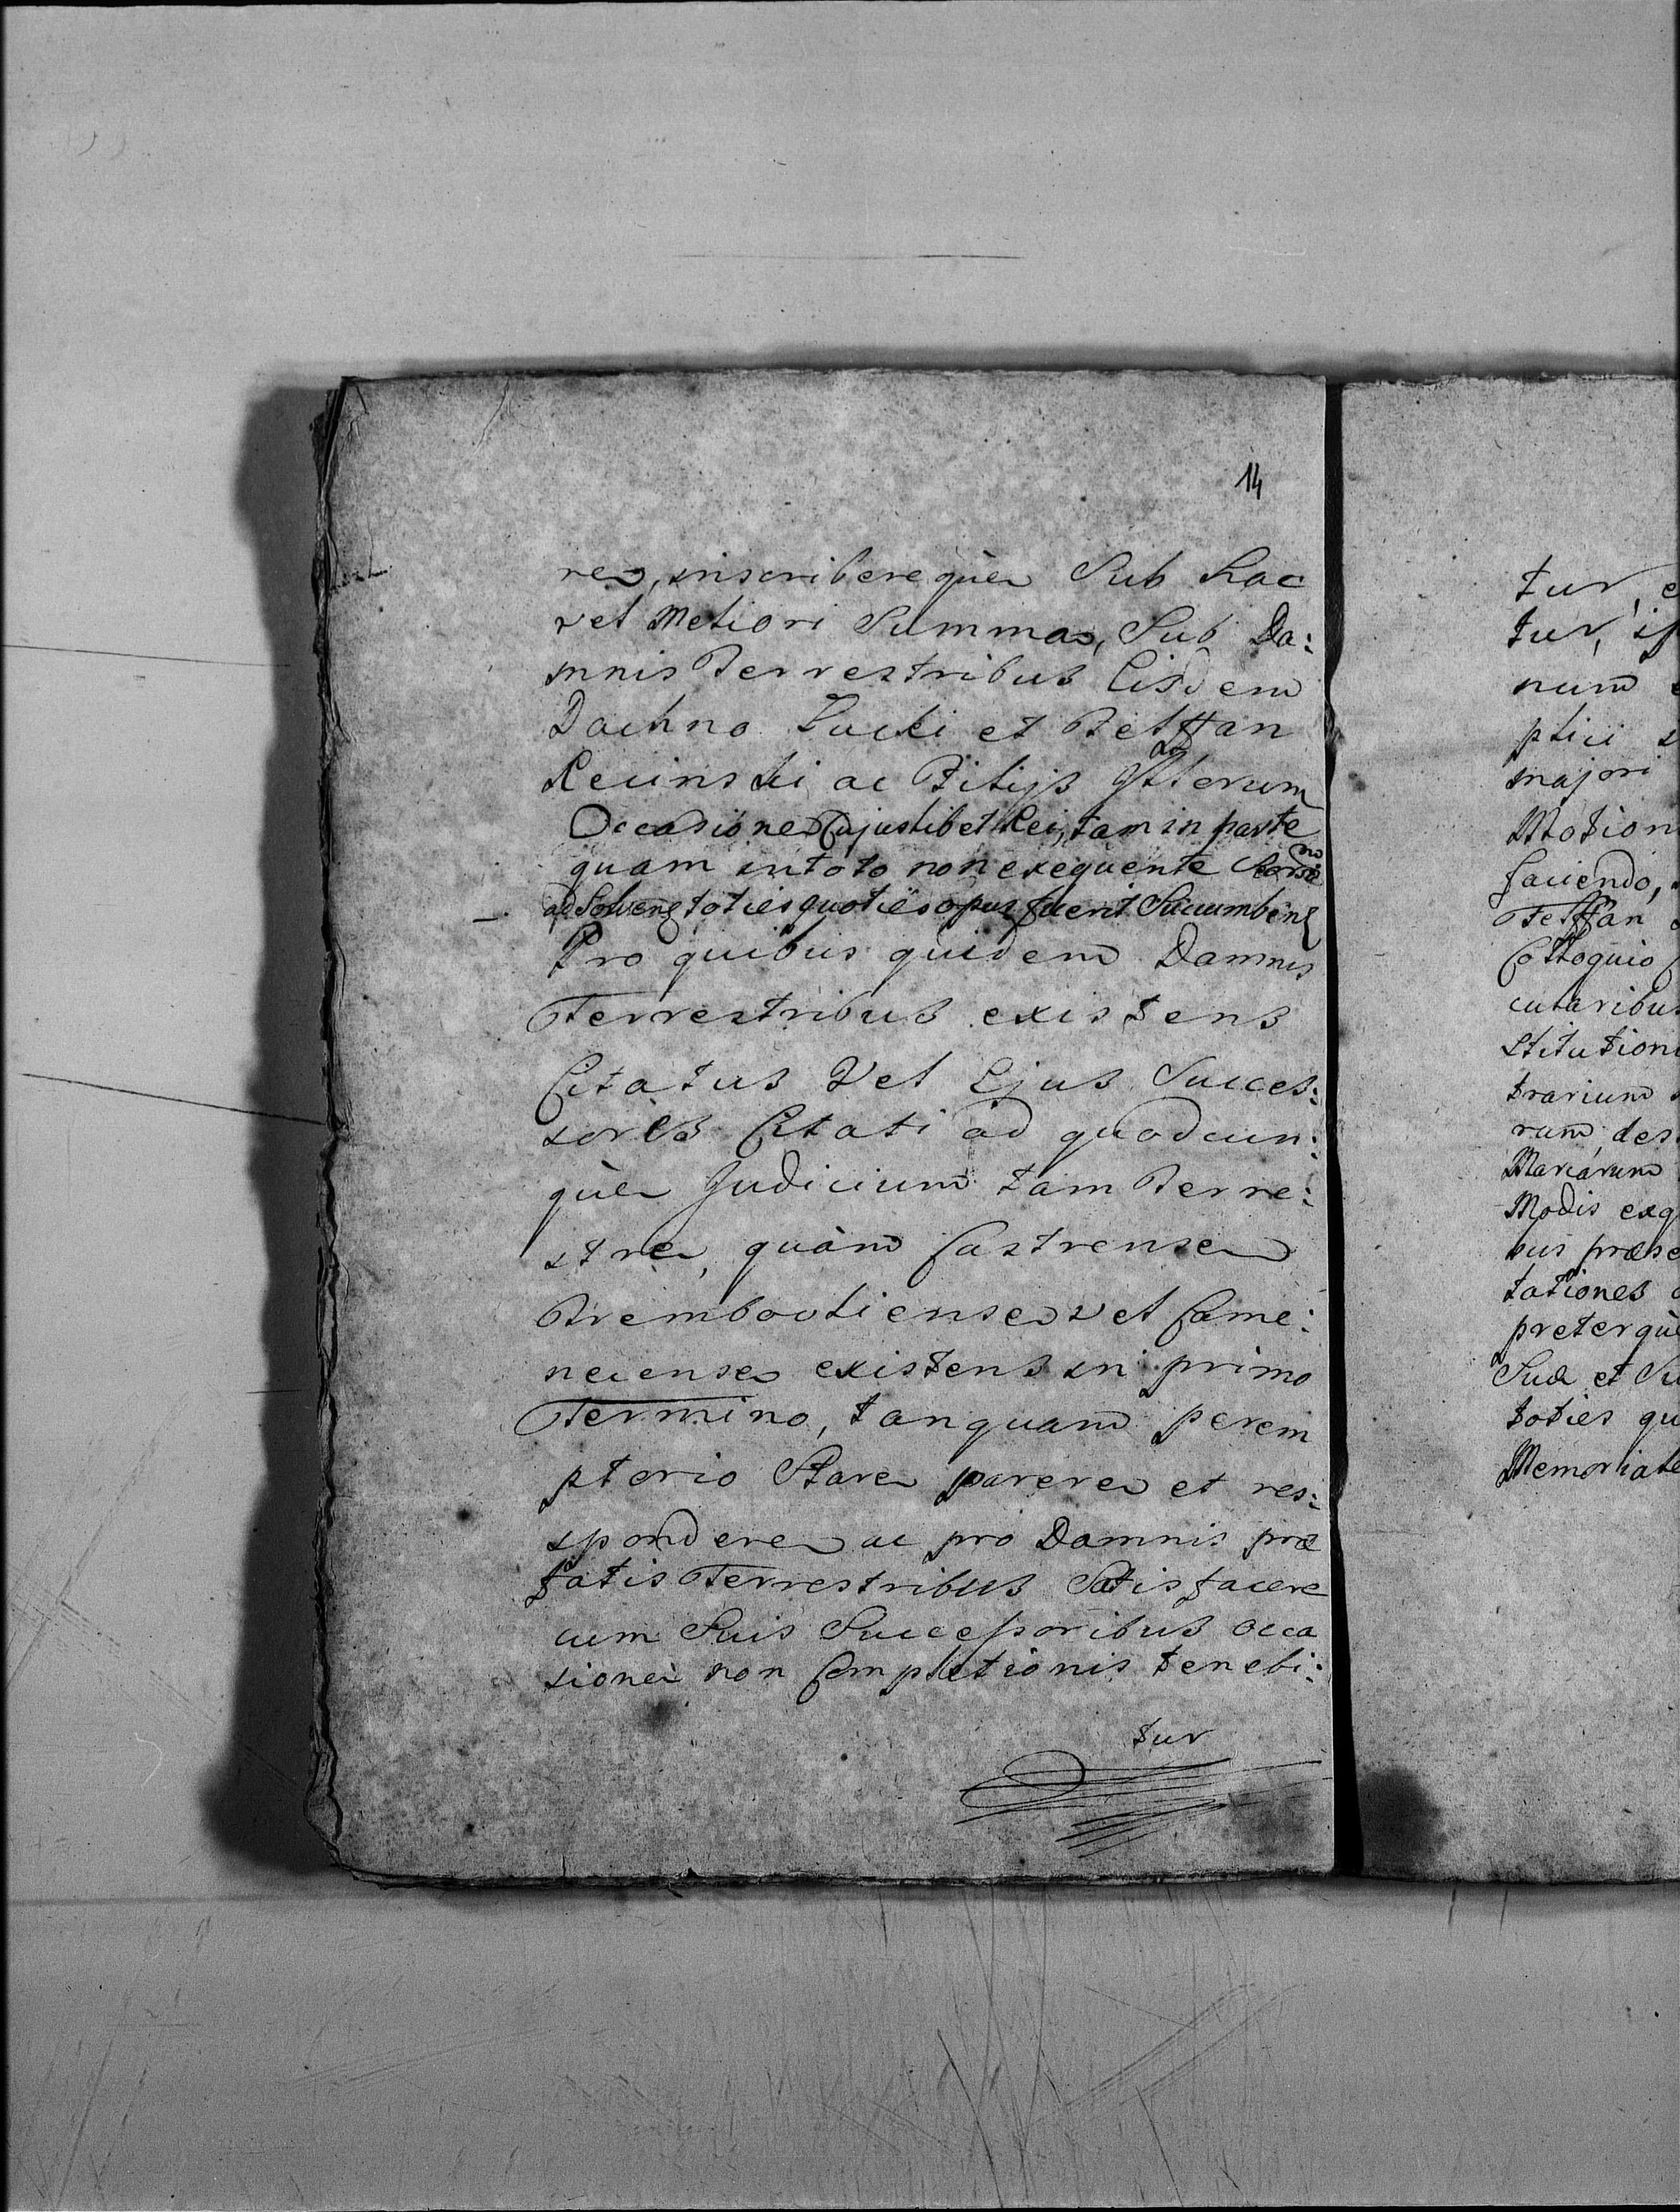 14
re, inscribereque Sub hac
vel Meliori Summa, Sub Da:
mnis Terrestribus Eisdem
Dachno Lucki et Telffan
Recinski ac Filijs Ipsorum
Occasione Cujuslibet Rei, tam in parte
quam intoto non exequente
ad Solven toties quoties opus fuerit Succumben
Pro quibus quidem Damnis
Terrestribus existens
Citatus Vel Ejus Succes:
sores Citati ad quodcun:
que Judicium tam Terre:
stre, quàm Castrense
Trembovliense vel Came:
necense existens in primo
Termino, tanquam perem
ptorio Stare parere et res:
spondere ac pro Damnis præ
fatis Terrestribus Satisfacere
cum Suis Successoribus occa
sione non Completionis tenebi:
tur
tur,
tur,
num
plici
majori
Motion
faciendo,
Telffan
Colloquio
cularibus
stitutioni
trarium
rum, des
Marcarum
Modis exq
sus præse
tationes
preterque
Sua et Su
toties qu
Memoriale